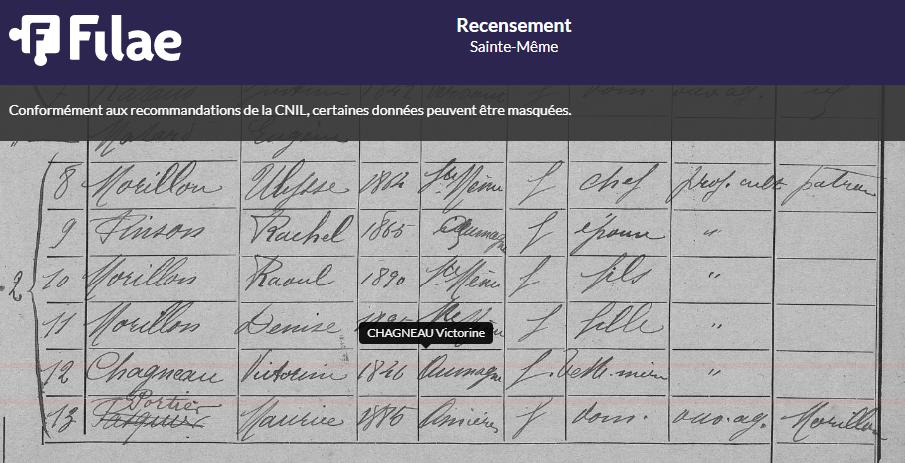 Filae
Recensement
Sainte-Même
Conformément aux recommandations de la CNIL, certaines données peuvent être masquées.
Eugène
8 Morillon Ulysse 1862 Ste Même f chef prop. cult patron
9 Pinson Rachel 1865 Aumagne f épouse "
2 10 Morillon Raoul 1890 Ste Même f fils "
11 Morillon Denise f fille "
CHAGNEAU Victorine
12 Chagneau Victorine 1846 Aumagne f. belle-mère "
Portier
13 Maurice 1886 Asnières f dom. ouv. ag. Morillon